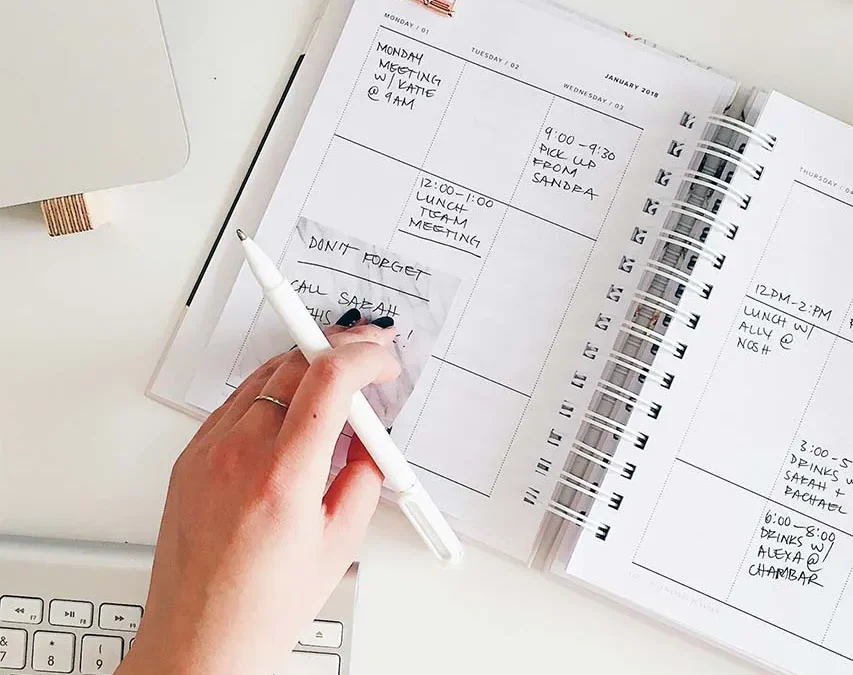 MONDAY / 01
MONDAY
MEETING
W/ KATIE
@ 9AM
TUESDAY / 02
12:00-1:00
LUNCH
TEAM
MEETING
JANUARY 2018
WEDNESDAY / 03
9:00-9:30
PICK UP
FROM
SANDRA
DON'T FORGET
CALL SARAH
THIS
!
THURSDAY / 04
12PM-2PM
LUNCH W/
ALLY @
NOSH
3:00-5
DRINKS W
SARAH +
RACHAEL
6:00-8:00
DRINKS W/
ALEXA @
CHAMBAR
F7
F8
F9
&
7
*
8
(
9